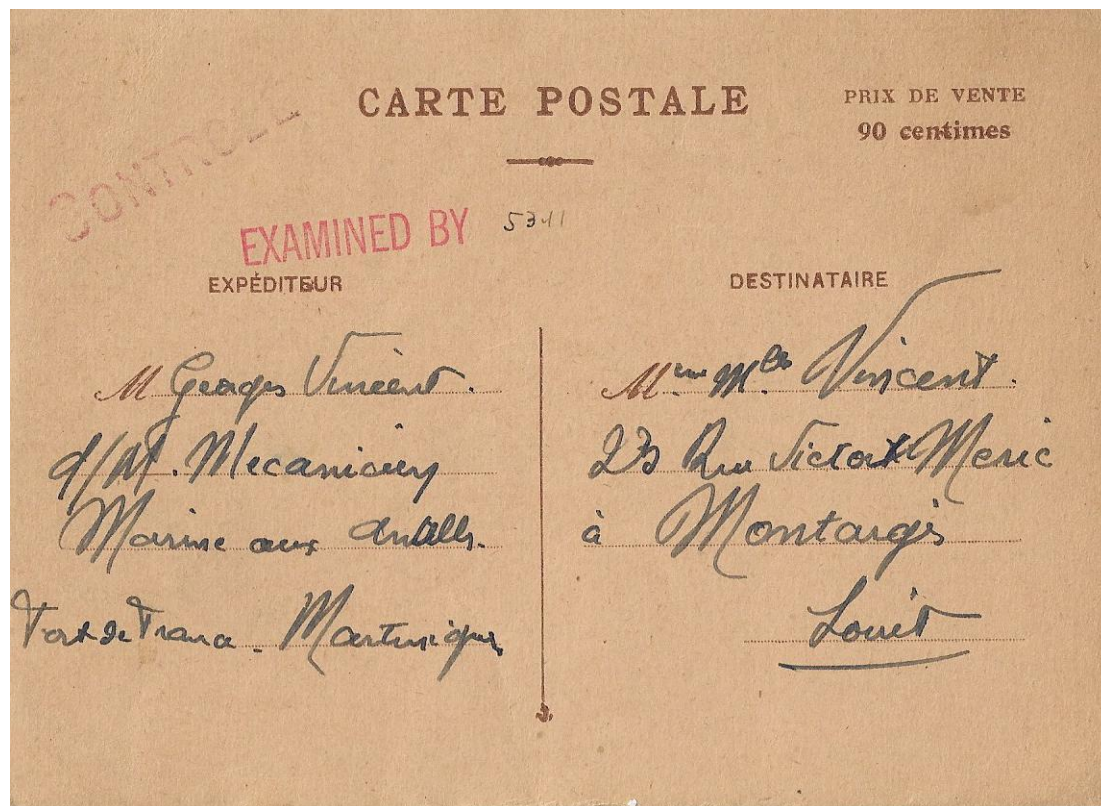 CARTE POSTALE
PRIX DE VENTE
90 centimes
CONTROLE
EXAMINED BY 5311
EXPÉDITEUR
M Georges Vincent.
d/M. Mecanicien
Marine aux Antilles.
Fort de France - Martinique
DESTINATAIRE
Mme Mlle Vincent.
23 Rue Victor Meric
à Montargis
Loiret